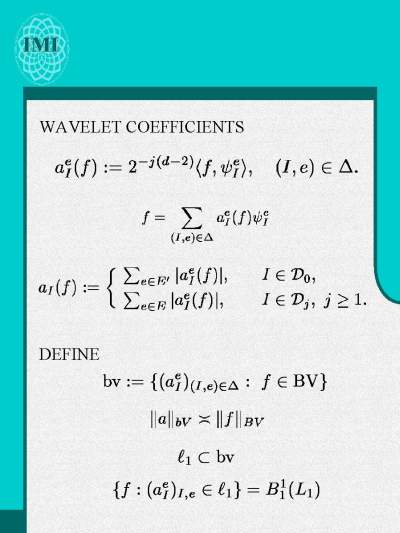 IMI
WAVELET COEFFICIENTS
a_I^e(f) := 2^{-j(d-2)}⟨f, ψ_I^e⟩, (I, e) ∈ Δ.
f = ∑_{(I,e)∈Δ} a_I^e(f)ψ_I^e
a_I(f) := { ∑_{e∈E'} |a_I^e(f)|, I ∈ 𝒟_0,
∑_{e∈E} |a_I^e(f)|, I ∈ 𝒟_j, j ≥ 1.
DEFINE
bv := {(a_I^e)_{(I,e)∈Δ} : f ∈ BV}
‖a‖_{bV} ≍ ‖f‖_{BV}
ℓ_1 ⊂ bv
{f : (a_I^e)_{I,e} ∈ ℓ_1} = B_1^1(L_1)